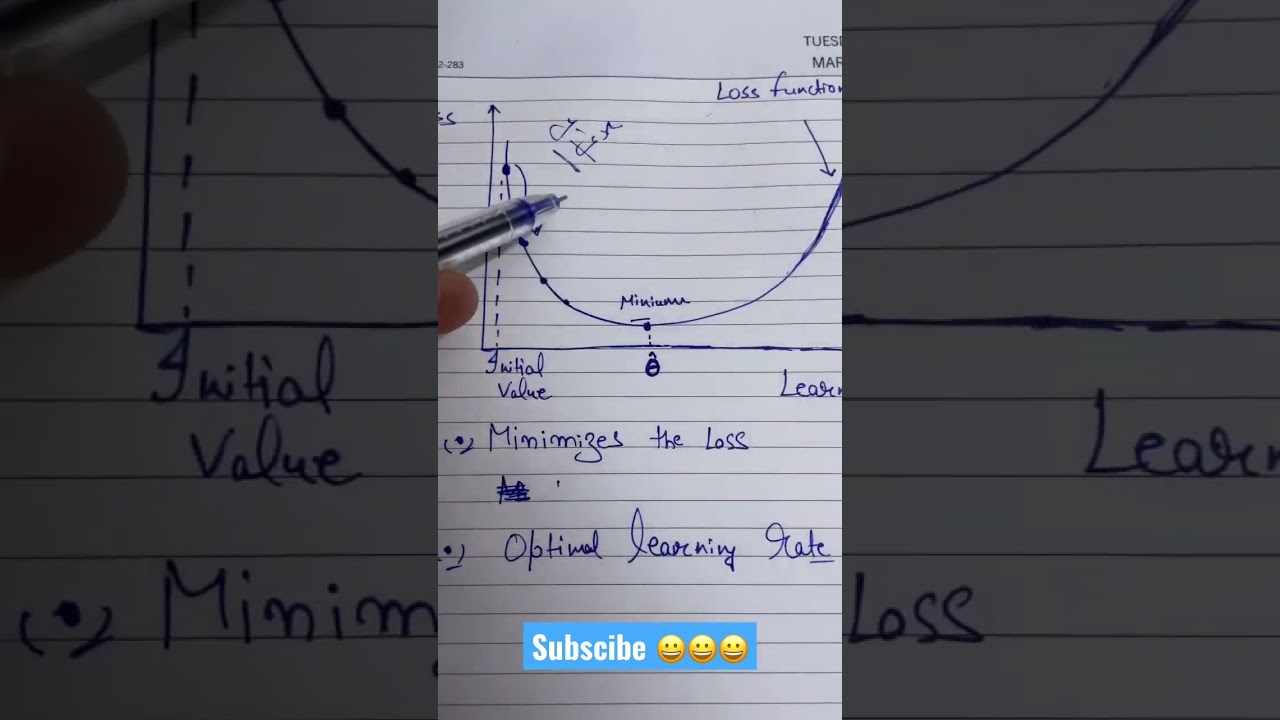 TUESD
2-283
MAR
Loss function
ss
Minimum
Initial
Value
θ̂
Learn
(•) Minimizes the Loss
(•) Optimal learning Rate
Subscibe 😀😀😀
Initial
Value
Learn
(•) Minim
Loss